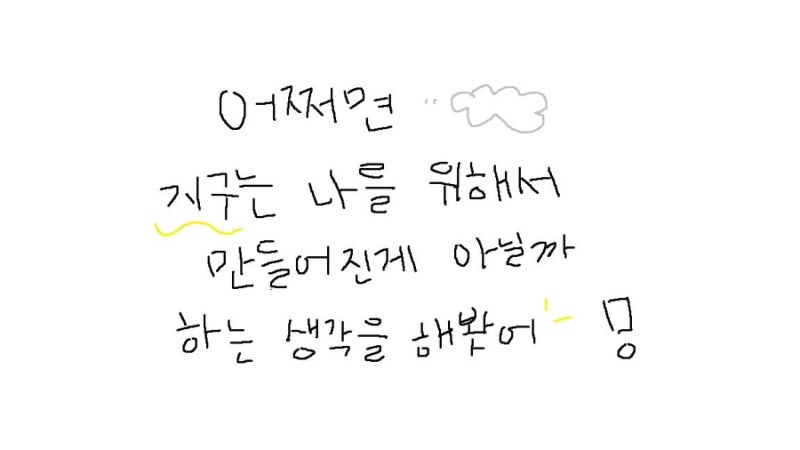 어쩌면 ..
지구는 나를 위해서
만들어진게 아닐까
하는 생각을 해봤어 밍